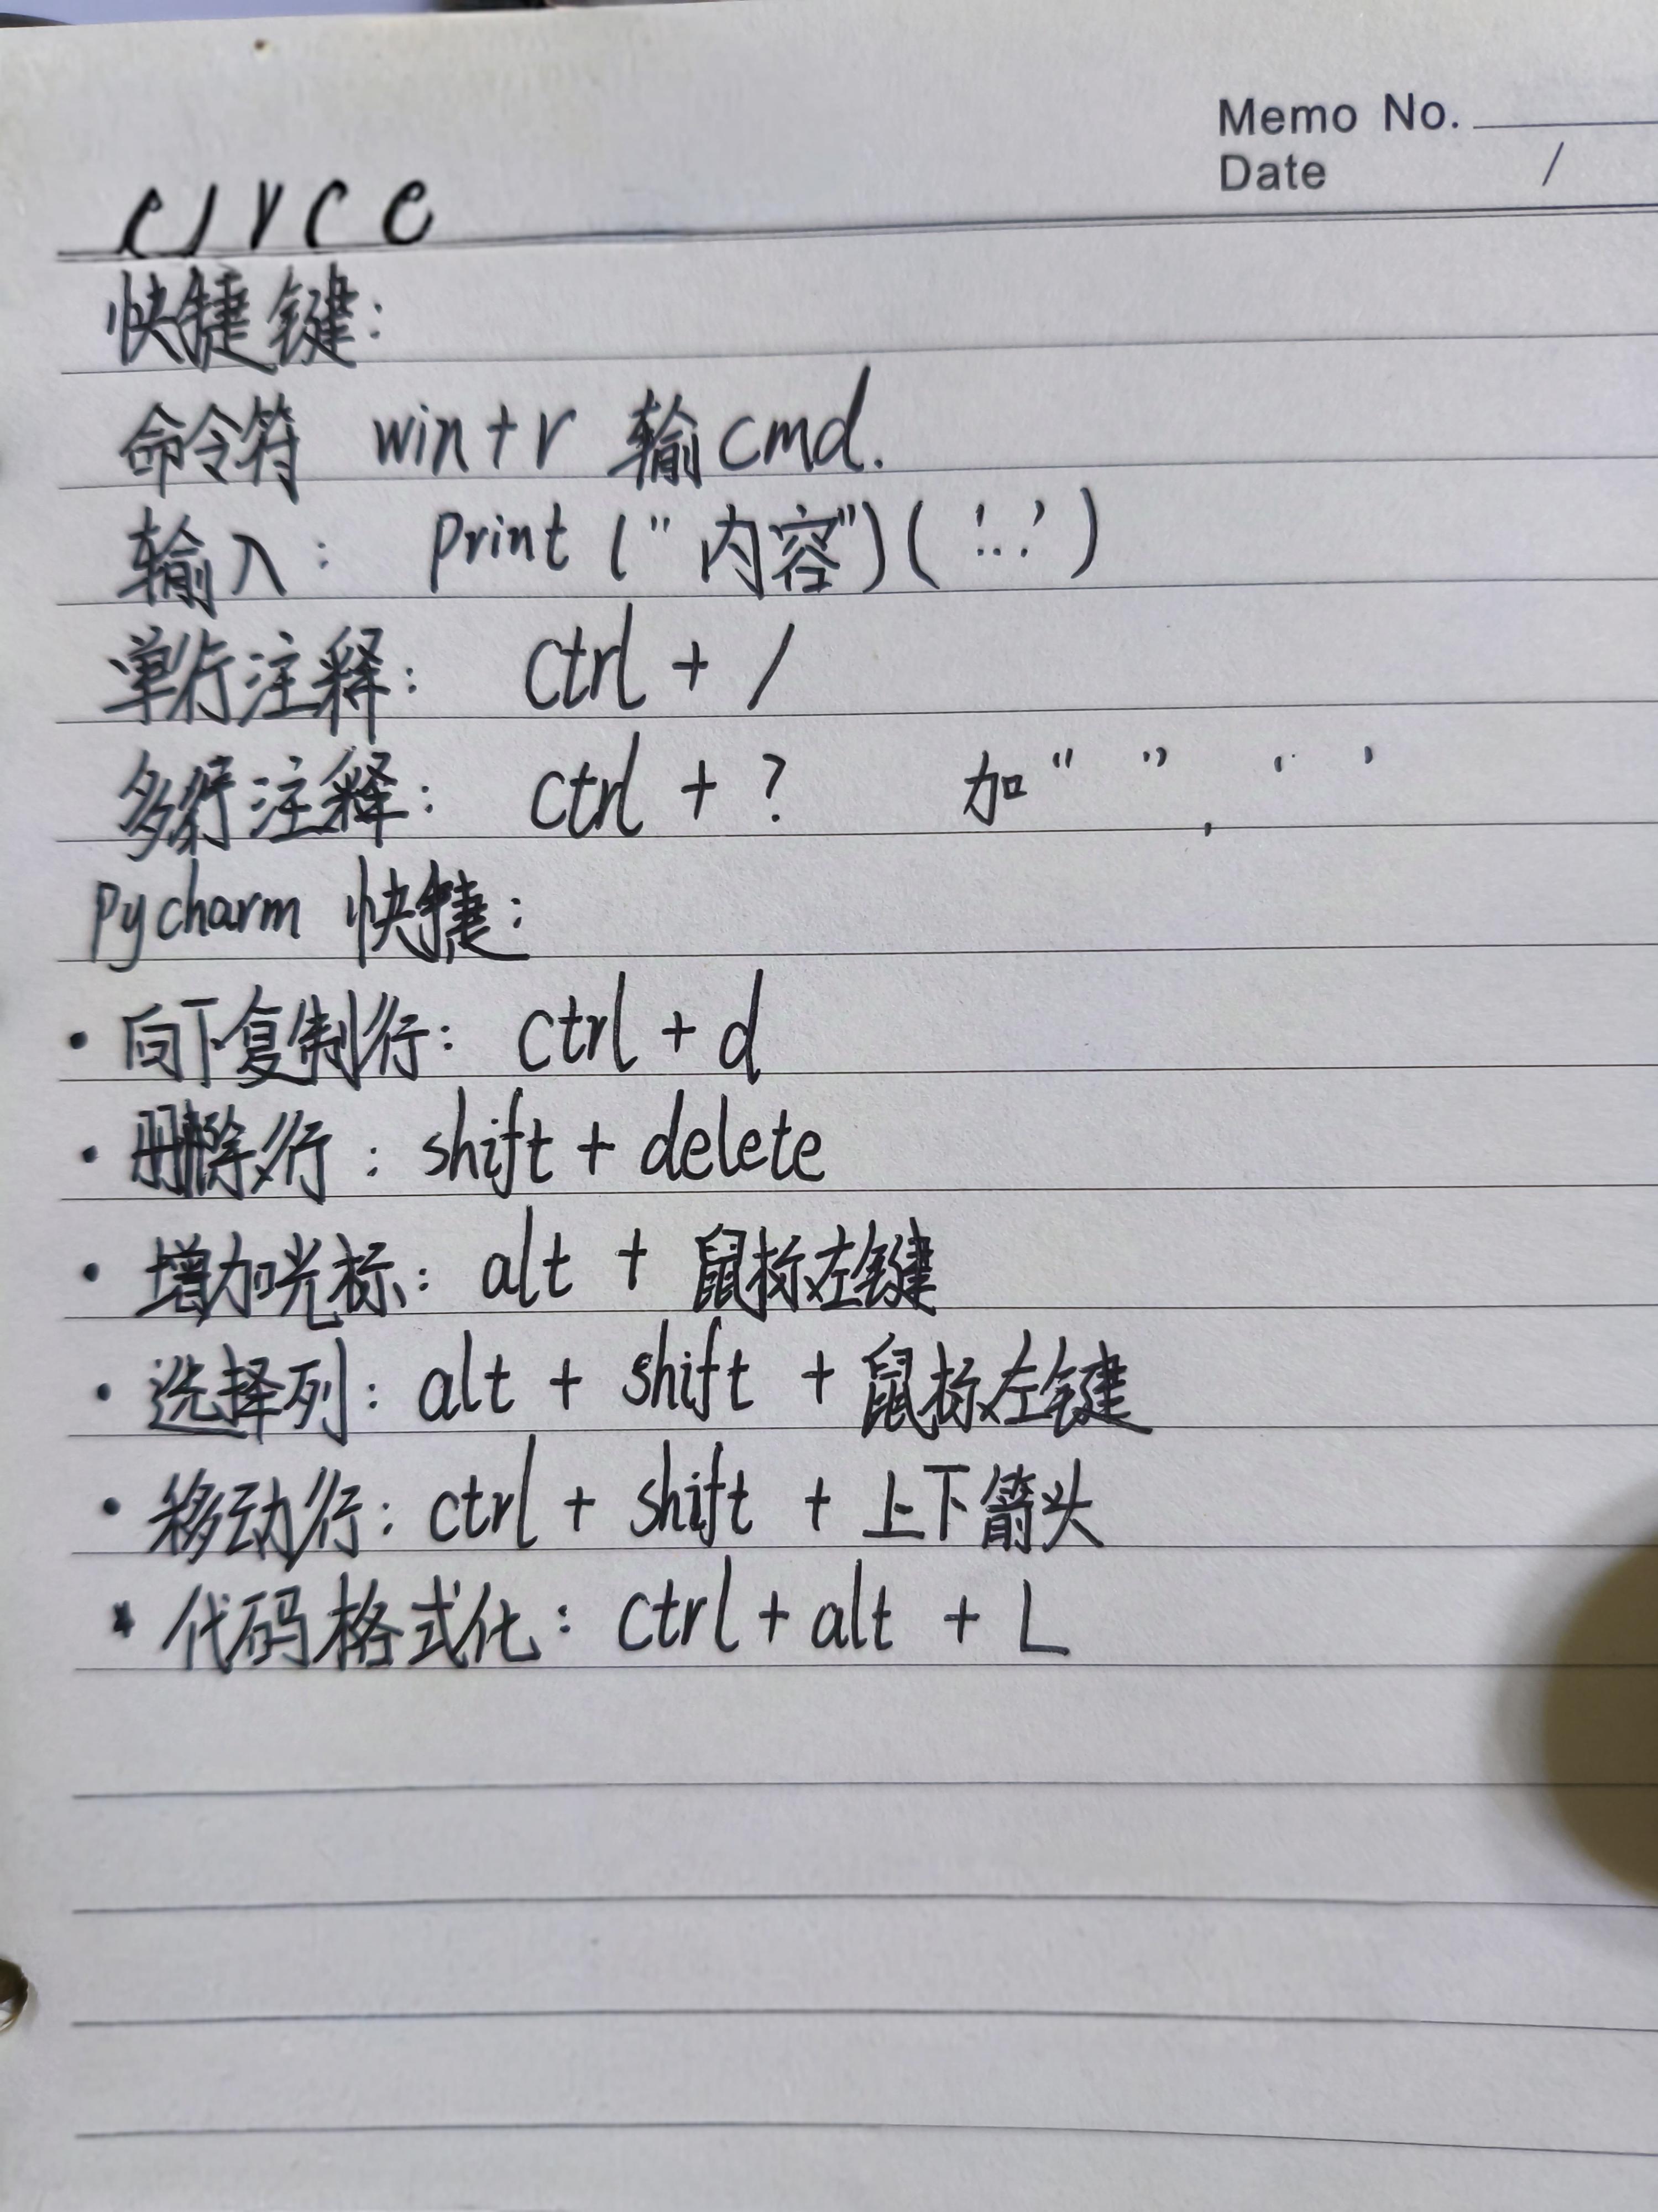 Memo No.
Date /
快捷键:
命令符 win+r 输cmd.
输入: print ("内容")('..')
单行注释: ctrl + /
多行注释: ctrl + ? 加" ", ' '
Pycharm 快捷:
· 向下复制行: ctrl + d
· 删除行: shift + delete
· 增加光标: alt + 鼠标左键
· 选择列: alt + shift + 鼠标左键
· 移动行: ctrl + shift + 上下箭头
· 代码格式化: ctrl + alt + L